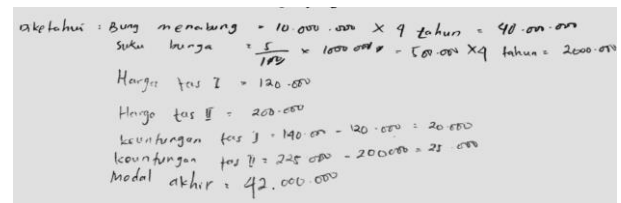 Diketahui : Bung menabung = 10.000.000 X 4 tahun = 40.000.000
Suku bunga = 5/100 x 10000000 = 500.000 X4 tahun = 2000.000
Harga tas I = 120.000
Harga tas II = 200.000
keuntungan tas I = 140.000 - 120.000 = 20.000
keuntungan tas II = 225 000 - 200000 = 25.000
Modal akhir = 42.000.000